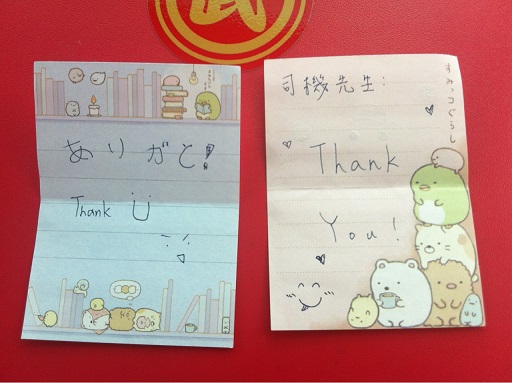 ありがと!
Thank Ü
すみっコぐらし
司機先生:
Thank
You!